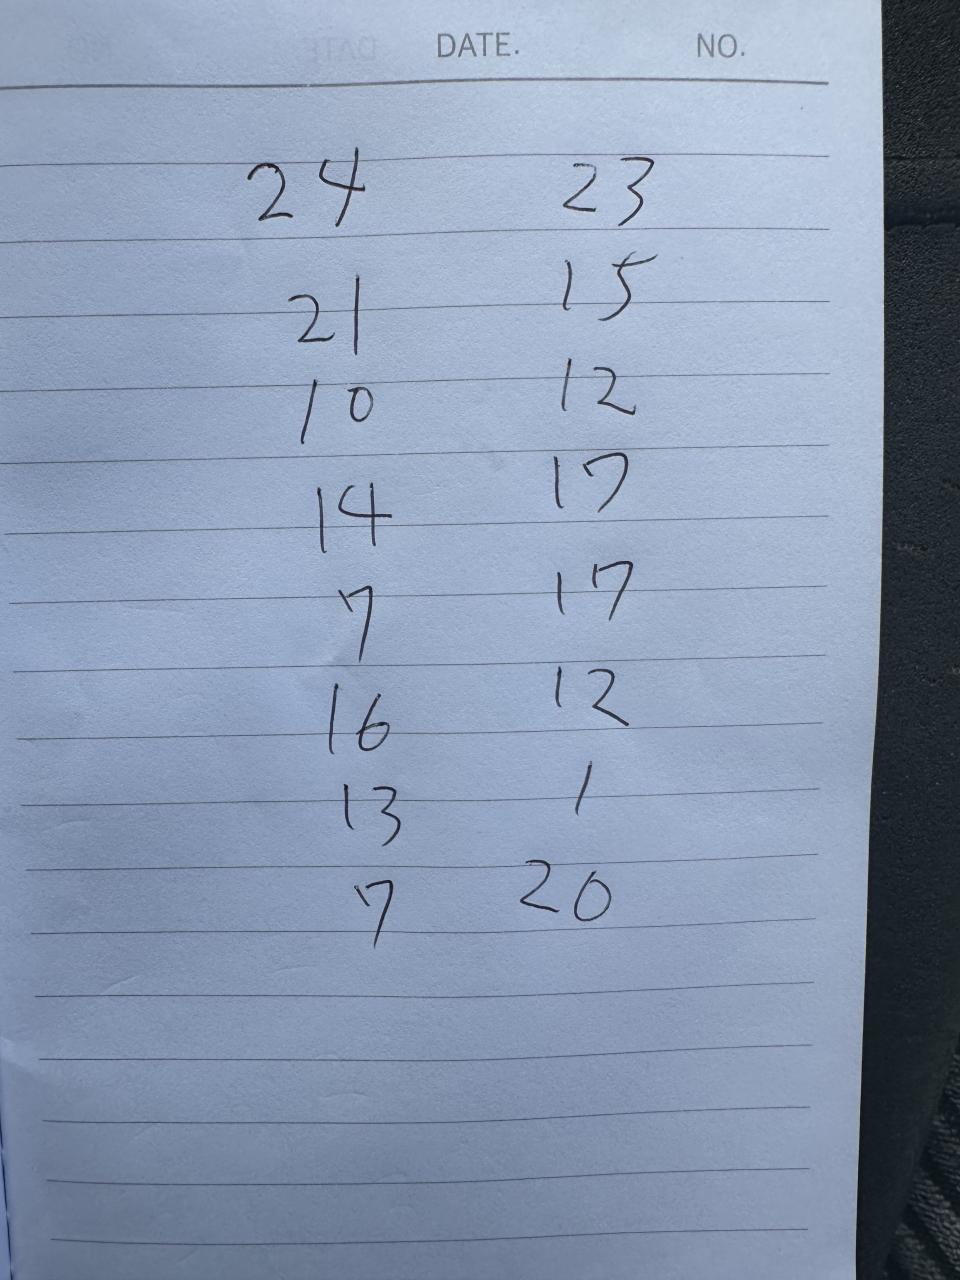 DATE. NO.
24 23
21 15
10 12
14 17
7 17
16 12
13 1
7 20